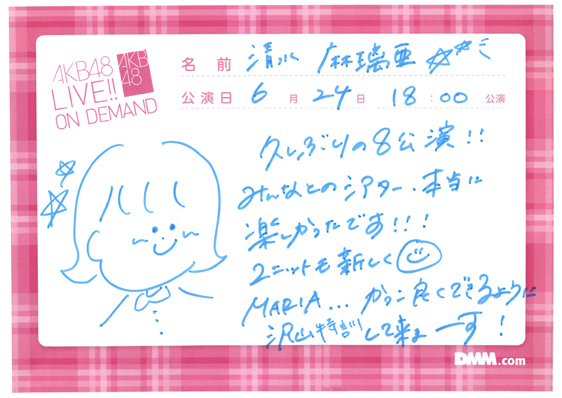 AKB48
LIVE!!
ON DEMAND
AKB
48
名前 清水 麻璃亜
公演日 6月24日 18:00 公演
久しぶりの8公演!!
みんなとのシアター、本当に
楽しかったです!!!
ユニットも新しく
MARIA... かっこ良くできるように
沢山特訓して来まーす!
DMM.com